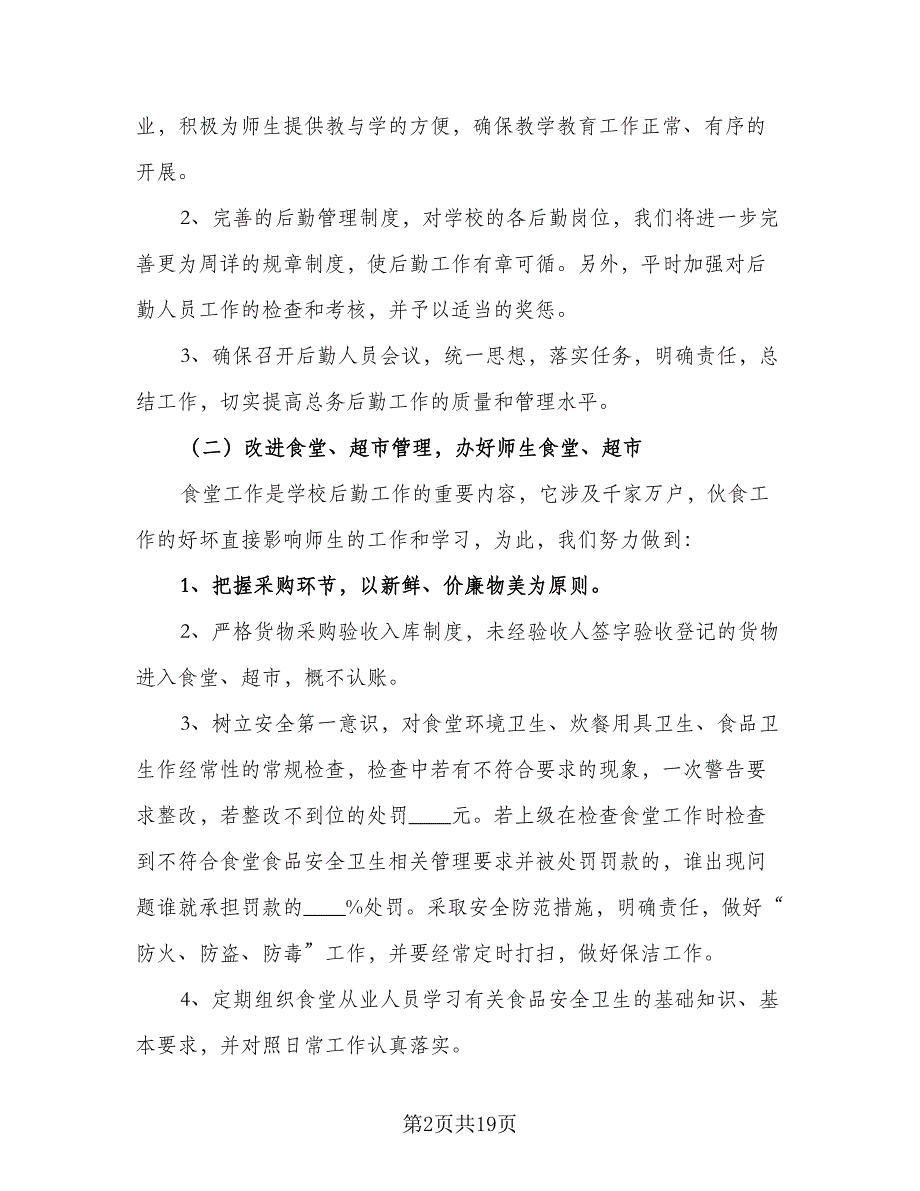 业，积极为师生提供教与学的方便，确保教学教育工作正常、有序的
开展。
2、完善的后勤管理制度，对学校的各后勤岗位，我们将进一步完
善更为周详的规章制度，使后勤工作有章可循。另外，平时加强对后
勤人员工作的检查和考核，并予以适当的奖惩。
3、确保召开后勤人员会议，统一思想，落实任务，明确责任，总
结工作，切实提高总务后勤工作的质量和管理水平。
（二）改进食堂、超市管理，办好师生食堂、超市
食堂工作是学校后勤工作的重要内容，它涉及千家万户，伙食工
作的好坏直接影响师生的工作和学习，为此，我们努力做到：
1、把握采购环节，以新鲜、价廉物美为原则。
2、严格货物采购验收入库制度，未经验收人签字验收登记的货物
进入食堂、超市，概不认账。
3、树立安全第一意识，对食堂环境卫生、炊餐用具卫生、食品卫
生作经常性的常规检查，检查中若有不符合要求的现象，一次警告要
求整改，若整改不到位的处罚____元。若上级在检查食堂工作时检查
到不符合食堂食品安全卫生相关管理要求并被处罚罚款的，谁出现问
题谁就承担罚款的____%处罚。采取安全防范措施，明确责任，做好“
防火、防盗、防毒”工作，并要经常定时打扫，做好保洁工作。
4、定期组织食堂从业人员学习有关食品安全卫生的基础知识、基
本要求，并对照日常工作认真落实。
第2页共19页